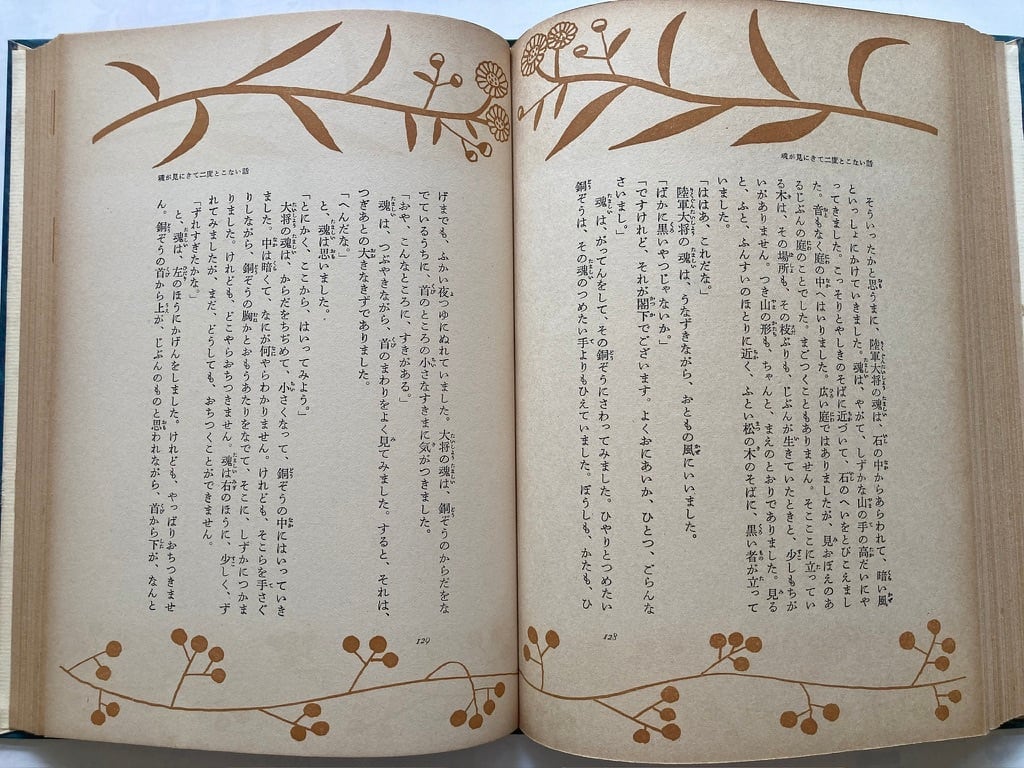 魂が見にきて二度とこない話
そういったかと思うまに、陸軍大将の魂は、石の中からあらわれて、暗い風
といっしょにかけていきました。魂は、やがて、しずかな山の手の高だいにや
ってきました。こっそりとやしきのそばに近づいて、石のへいをとびこえまし
た。音もなく庭の中へはいりました。広い庭ではありましたが、見おぼえのあ
るじぶんの庭のことでした。まごつくこともありません。そこここに立ってい
る木は、その場所も、その枝ぶりも、じぶんが生きていたときと、少しもちが
いがありません。つき山の形も、ちゃんと、まえのとおりでありました。見る
と、ふと、ふんすいのほとりに近く、ふとい松の木のそばに、黒い者が立って
いました。
「ははあ、これだな。」
陸軍大将の魂は、うなずきながら、おともの風にいいました。
「ばかに黒いやつじゃないか。」
「ですけれど、それが閣下でございます。よくおにあいか、ひとつ、ごらんな
さいまし。」
魂は、がてんをして、その銅ぞうにさわってみました。ひやりとつめたい
銅ぞうは、その魂のつめたい手よりもひえていました。ぼうしも、かたも、ひ
128
魂が見にきて二度とこない話
げまでも、ふかい夜つゆにぬれていました。大将の魂は、銅ぞうのからだをな
でているうちに、首のところの小さなすきまに気がつきました。
「おや、こんなところに、すきがある。」
魂は、つぶやきながら、首のまわりをよく見てみました。すると、それは、
つぎあとの大きなきずでありました。
「へんだな。」
と、魂は思いました。
「とにかく、ここから、はいってみよう。」
大将の魂は、からだをちぢめて、小さくなって、銅ぞうの中にはいっていき
ました。中は暗くて、なにが何やらわかりません。けれども、そこらを手さぐ
りしながら、銅ぞうの胸かとおもうあたりをなでて、そこに、しずかにつかま
りました。けれども、どこやらおちつきません。魂は右のほうに、少しく、ず
れてみましたが、まだ、どうしても、おちつくことができません。
「ずれすぎたかな。」
と、魂は、左のほうにかげんをしました。けれども、やっぱりおちつきませ
ん。銅ぞうの首から上が、じぶんのものと思われながら、首から下が、なんと
129